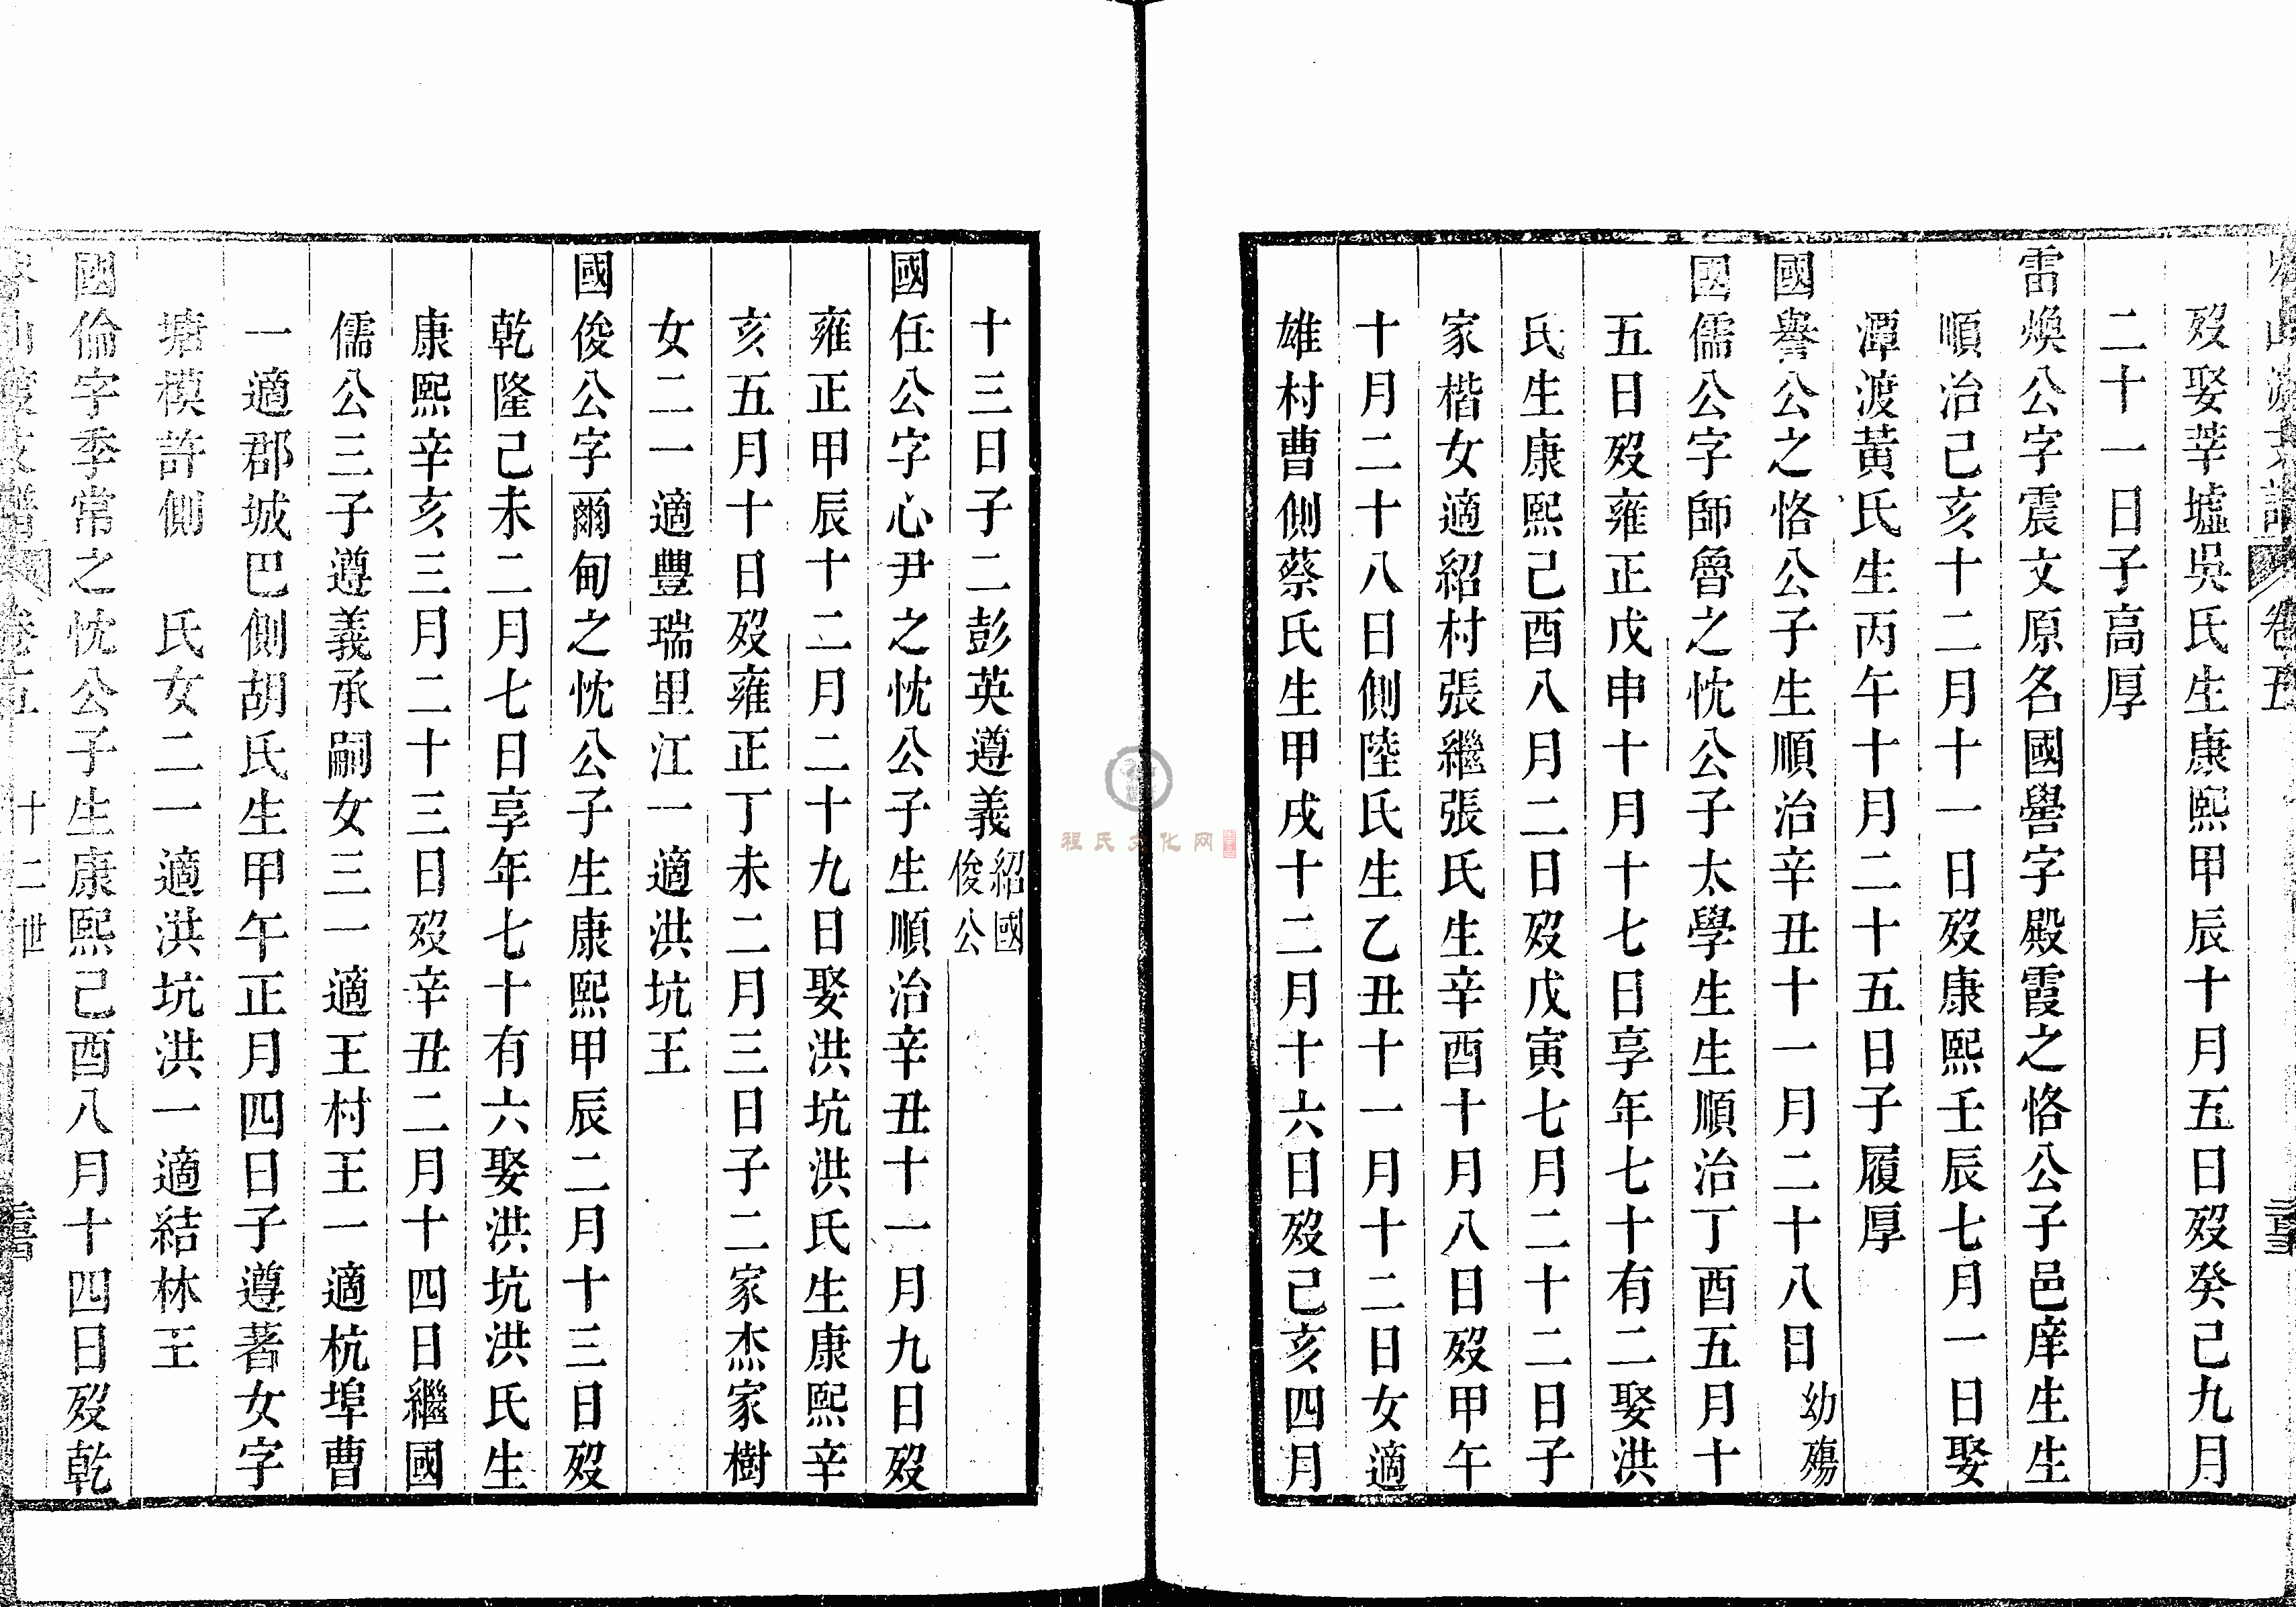 歿娶莘墟吳氏生康熙甲辰十月五日歿癸己九月
二十一日子高厚
雷煥公字震文原名國嚳字殿霞之恪公子邑庠生生
順治己亥十二月十一日歿康熙壬辰七月一日娶
潭渡黃氏生丙午十月二十五日子履厚
國譽公之恪公子生順治辛丑十一月二十八日幼殤
國儒公字師魯之忱公子太學生生順治丁酉五月十
五日歿雍正戊申十月十七日享年七十有二娶洪
氏生康熙己酉八月二日歿戊寅七月二十二日子
家楷女適紹村張繼張氏生辛酉十月八日歿甲午
十月二十八日側陸氏生乙丑十一月十二日女適
雄村曹側蔡氏生甲戌十二月十六日歿己亥四月
十三日子二彭英遵義紹國俊公
國任公字心尹之忱公子生順治辛丑十一月九日歿
雍正甲辰十二月二十九日娶洪坑洪氏生康熙辛
亥五月十日歿雍正丁未二月三日子二家杰家樹
女二一適豐瑞里江一適洪坑王
國俊公字爾甸之忱公子生康熙甲辰二月十三日歿
乾隆己未二月七日享年七十有六娶洪坑洪氏生
康熙辛亥三月二十三日歿辛丑二月十四日繼國
儒公三子遵義承嗣女三一適王村王一適杭埠曹
一適郡城巴側胡氏生甲午正月四日子遵著女字
塘模許側 氏女二一適洪坑洪一適結林王
國倫字季常之忱公子生康熙己酉八月十四日歿乾
卷五 十二世
程氏文化网